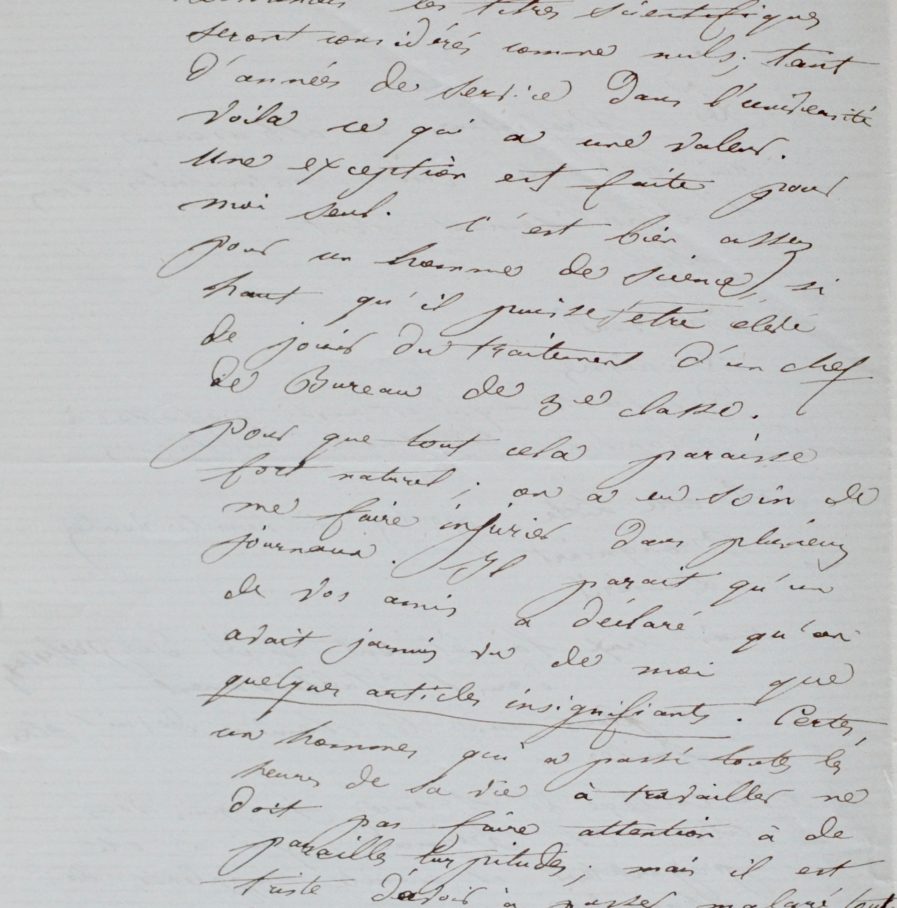 les titres scientifiques
seront considérés comme nuls; tant
d'années de service dans l'université
voilà ce qui a une valeur.
Une exception est faite pour
moi seul. C'est bien assez
pour un homme de science, si
haut qu'il puisse être élevé
de jouir du traitement d'un chef
de Bureau de 3e classe.
Pour que tout cela paraisse
fort naturel; on a eu soin de
me faire injurier dans plusieurs
journaux. Il parait qu'un
de vos amis a déclaré qu'on
avait jamais vu de moi que
quelques articles insignifiants. Certes,
un hommes qui a passé toutes les
heures de sa vie à travailler ne
doit pas faire attention à de
pareilles turpitudes; mais il est
triste d'avoir à passer malgré tout